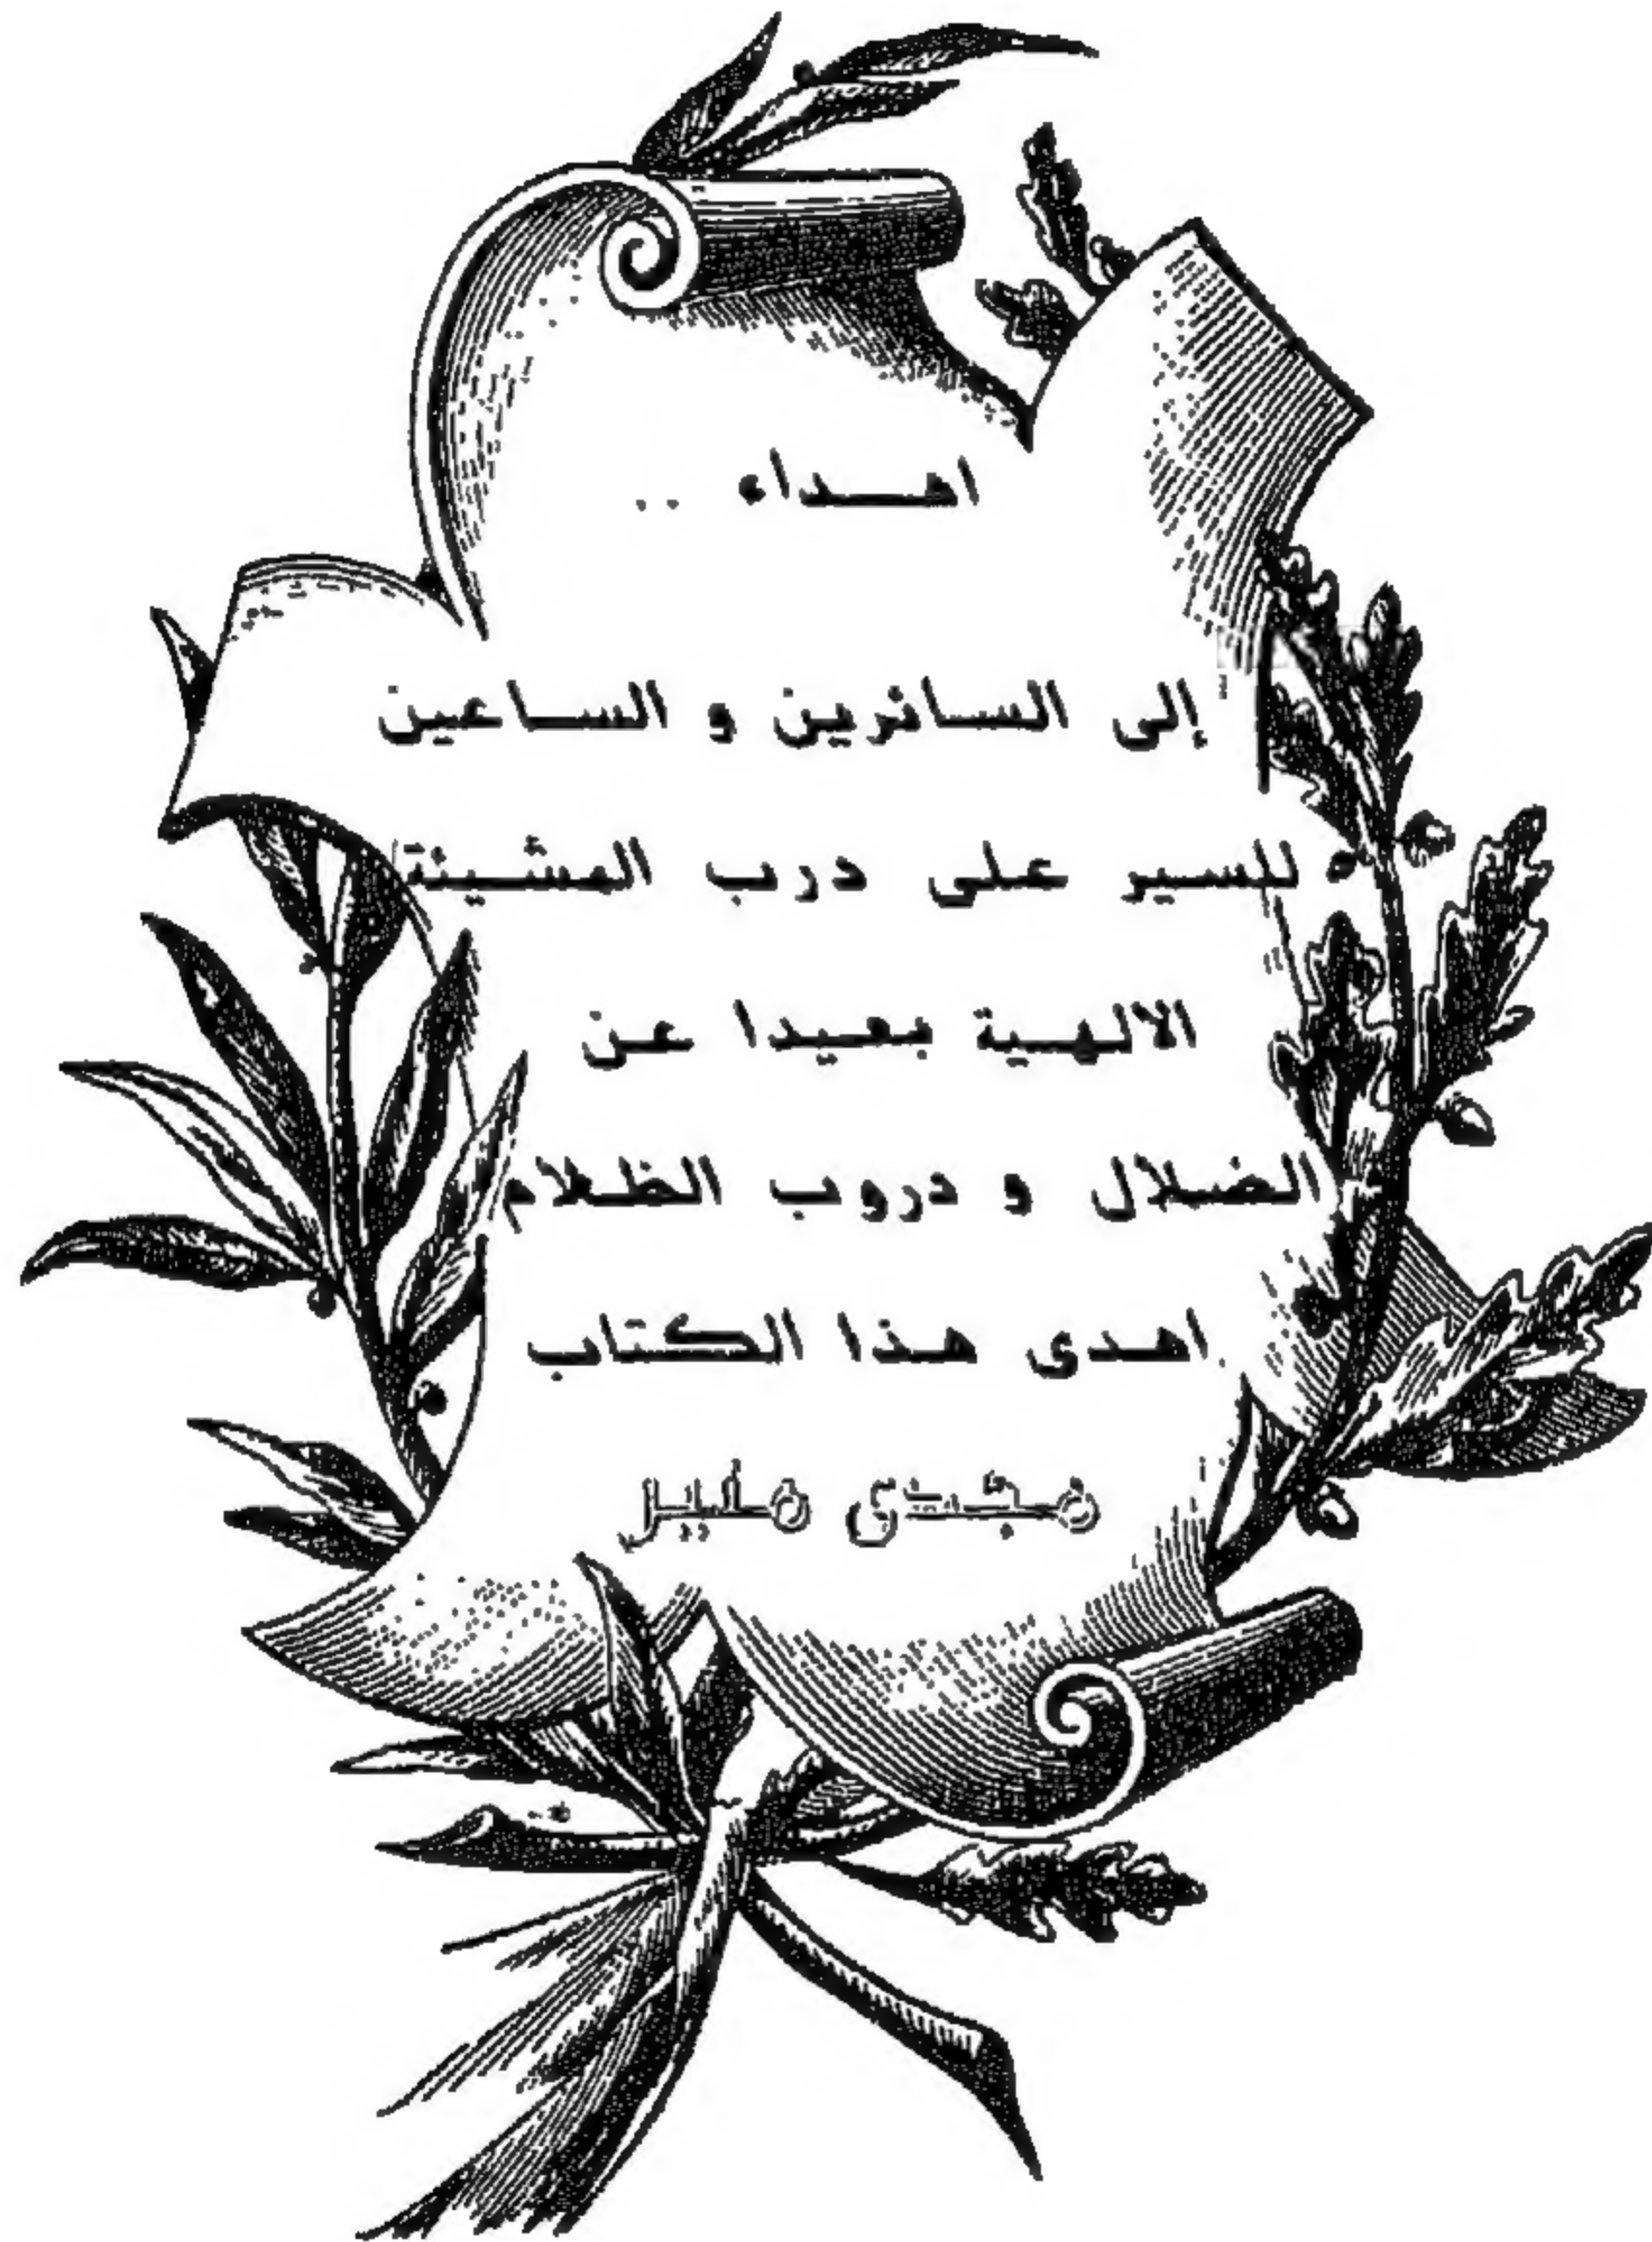 اهداء ..
إلى السائرين و الساعين
للسير على درب المشيئة
الالهية بعيدا عن
الضلال و دروب الظلام
اهدى هذا الكتاب
مجدى منير